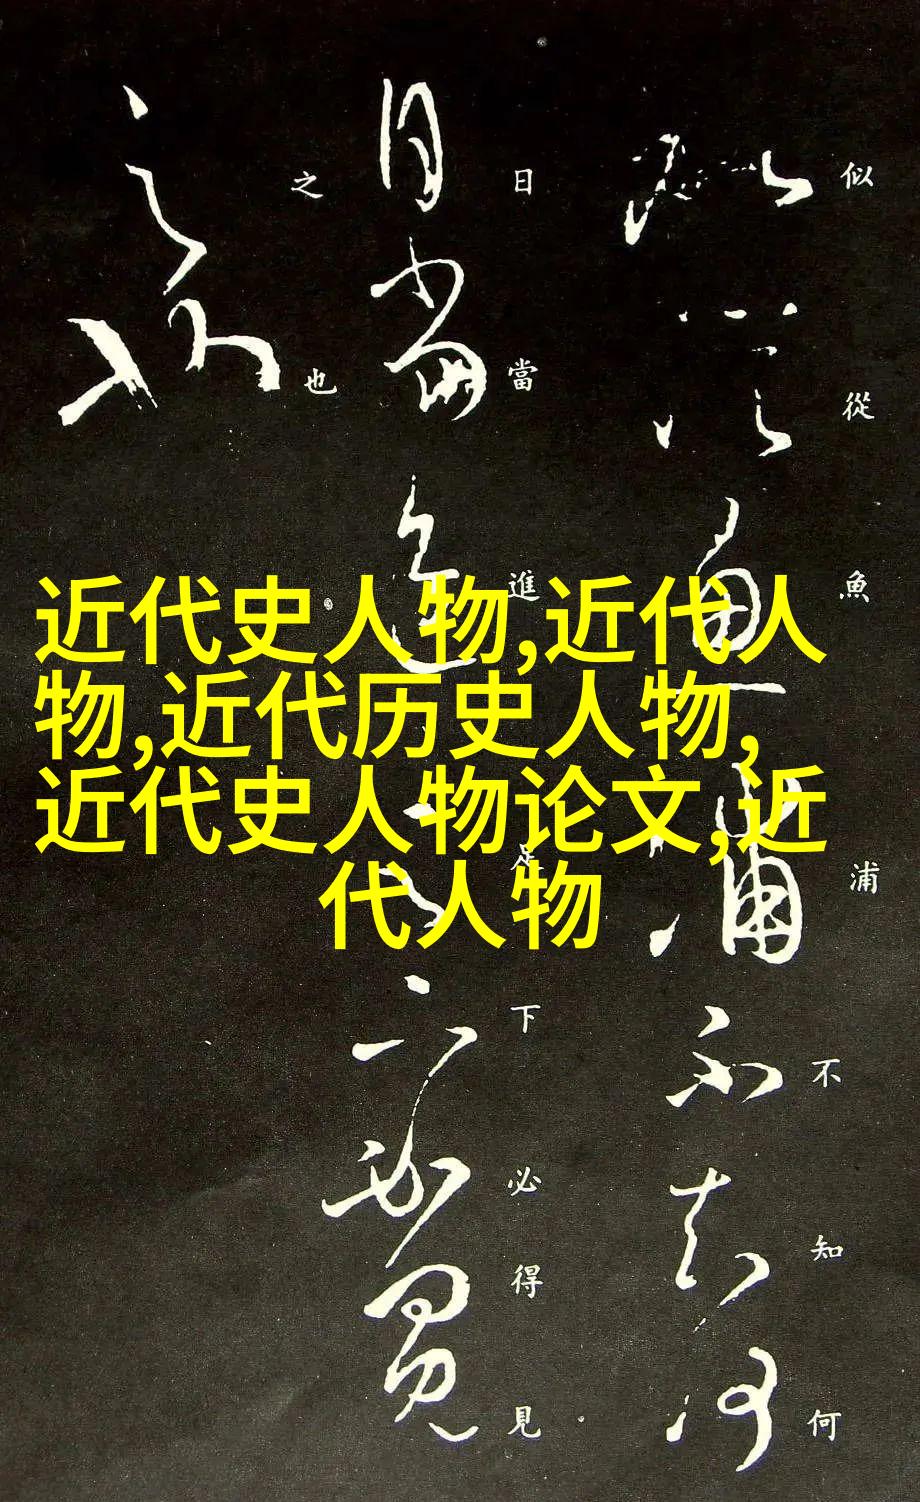 似從魚浦不知何
日當進足下必得見
之也
近代史人物,近代人
物,近代历史人物,
近代史人物论文,近
代人物